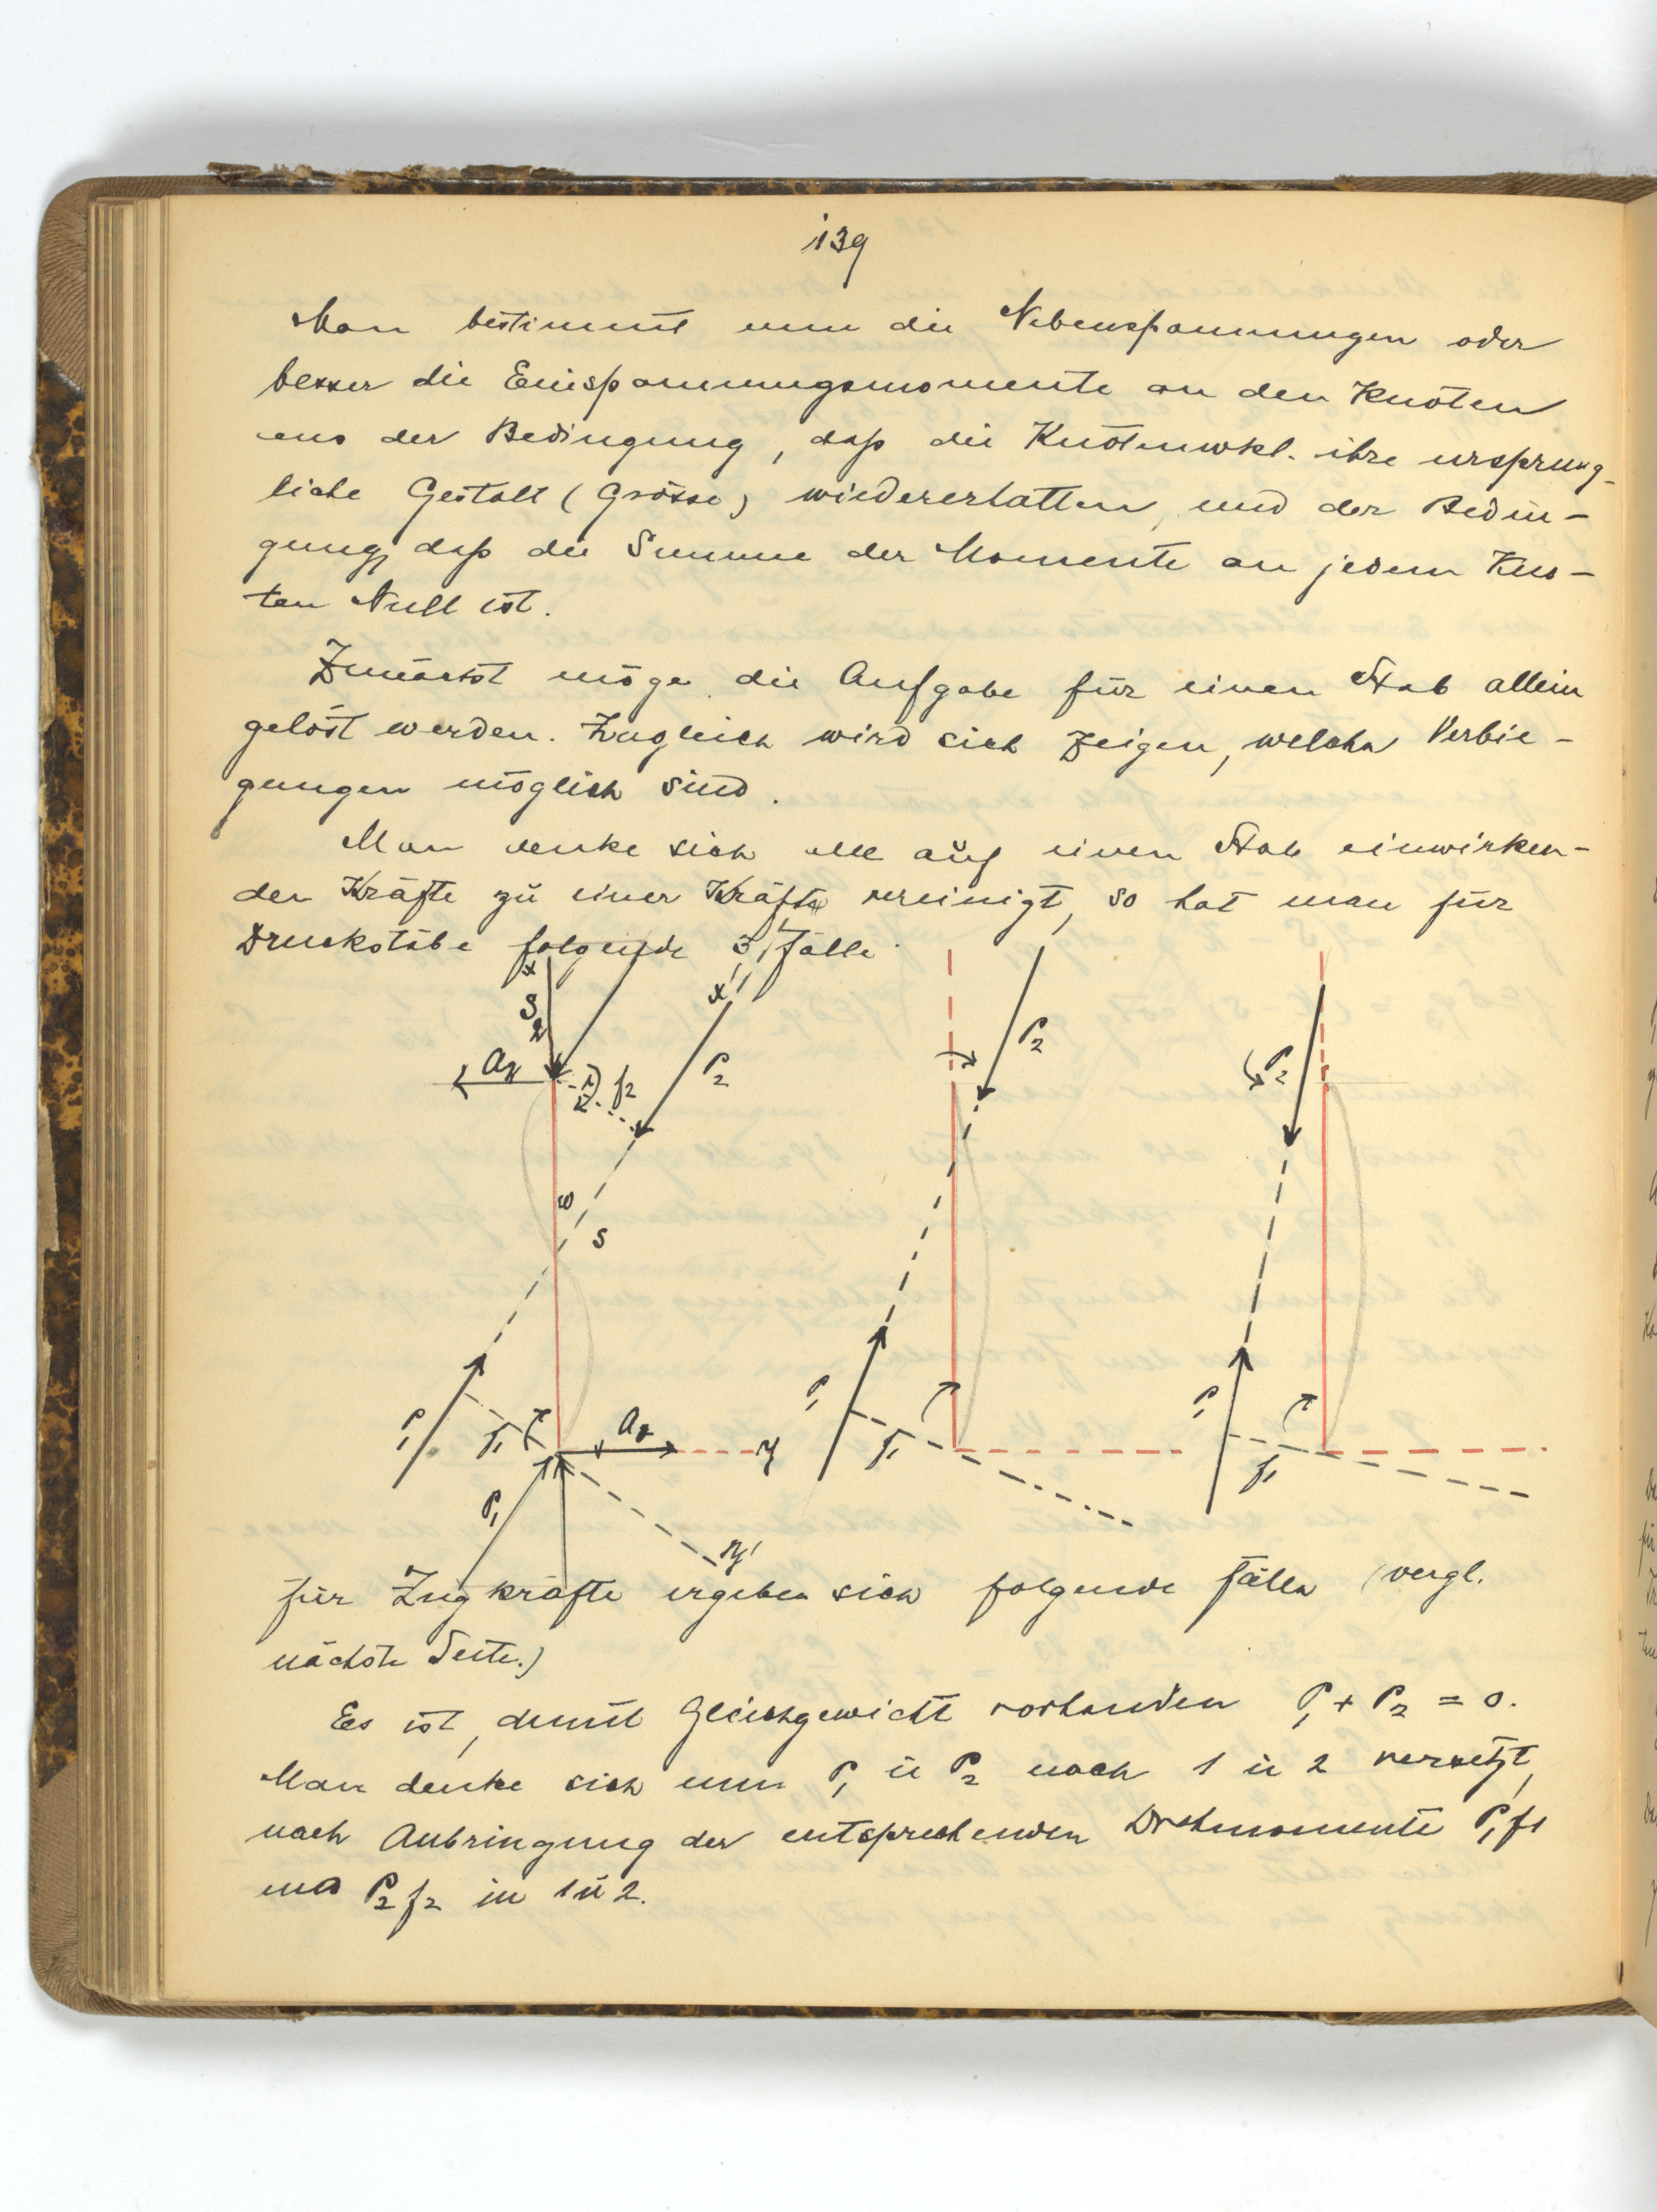 139
Man bestimmt nun die Nebenspannungen oder
besser die Einspannungsmomente an den Knoten
aus der Bedingung, daß die Knotenwkl. ihre ursprüng-
liche Gestalt (Grösse) wiedererhalten, und der Bedin-
gung, daß die Summe der Momente an jedem Kno-
ten Null ist.
Zunächst möge die Aufgabe für einen Stab allein
gelöst werden. Zugleich wird sich zeigen, welche Verbie-
gungen möglich sind.
Man denke sich alle auf einen Stab einwirken-
den Kräfte zu einer Kräfte vereinigt, so hat man für
Druckstäbe folgende 3 Fälle
x
S
2
x'
P2
A
f2
ω
s
P1
f1
A
y
P1
y'
P2
P1
f1
P2
P1
f1
für Zugkräfte ergeben sich folgende Fälle (vergl.
nächste Seite.)
Es ist, damit Gleichgewicht vorhanden P1 + P2 = 0.
Man denke sich nun P1 u P2 nach 1 u 2 versetzt,
nach Anbringung der entsprechenden Drehmomente P1 f1
und P2 f2 in 1 u 2.